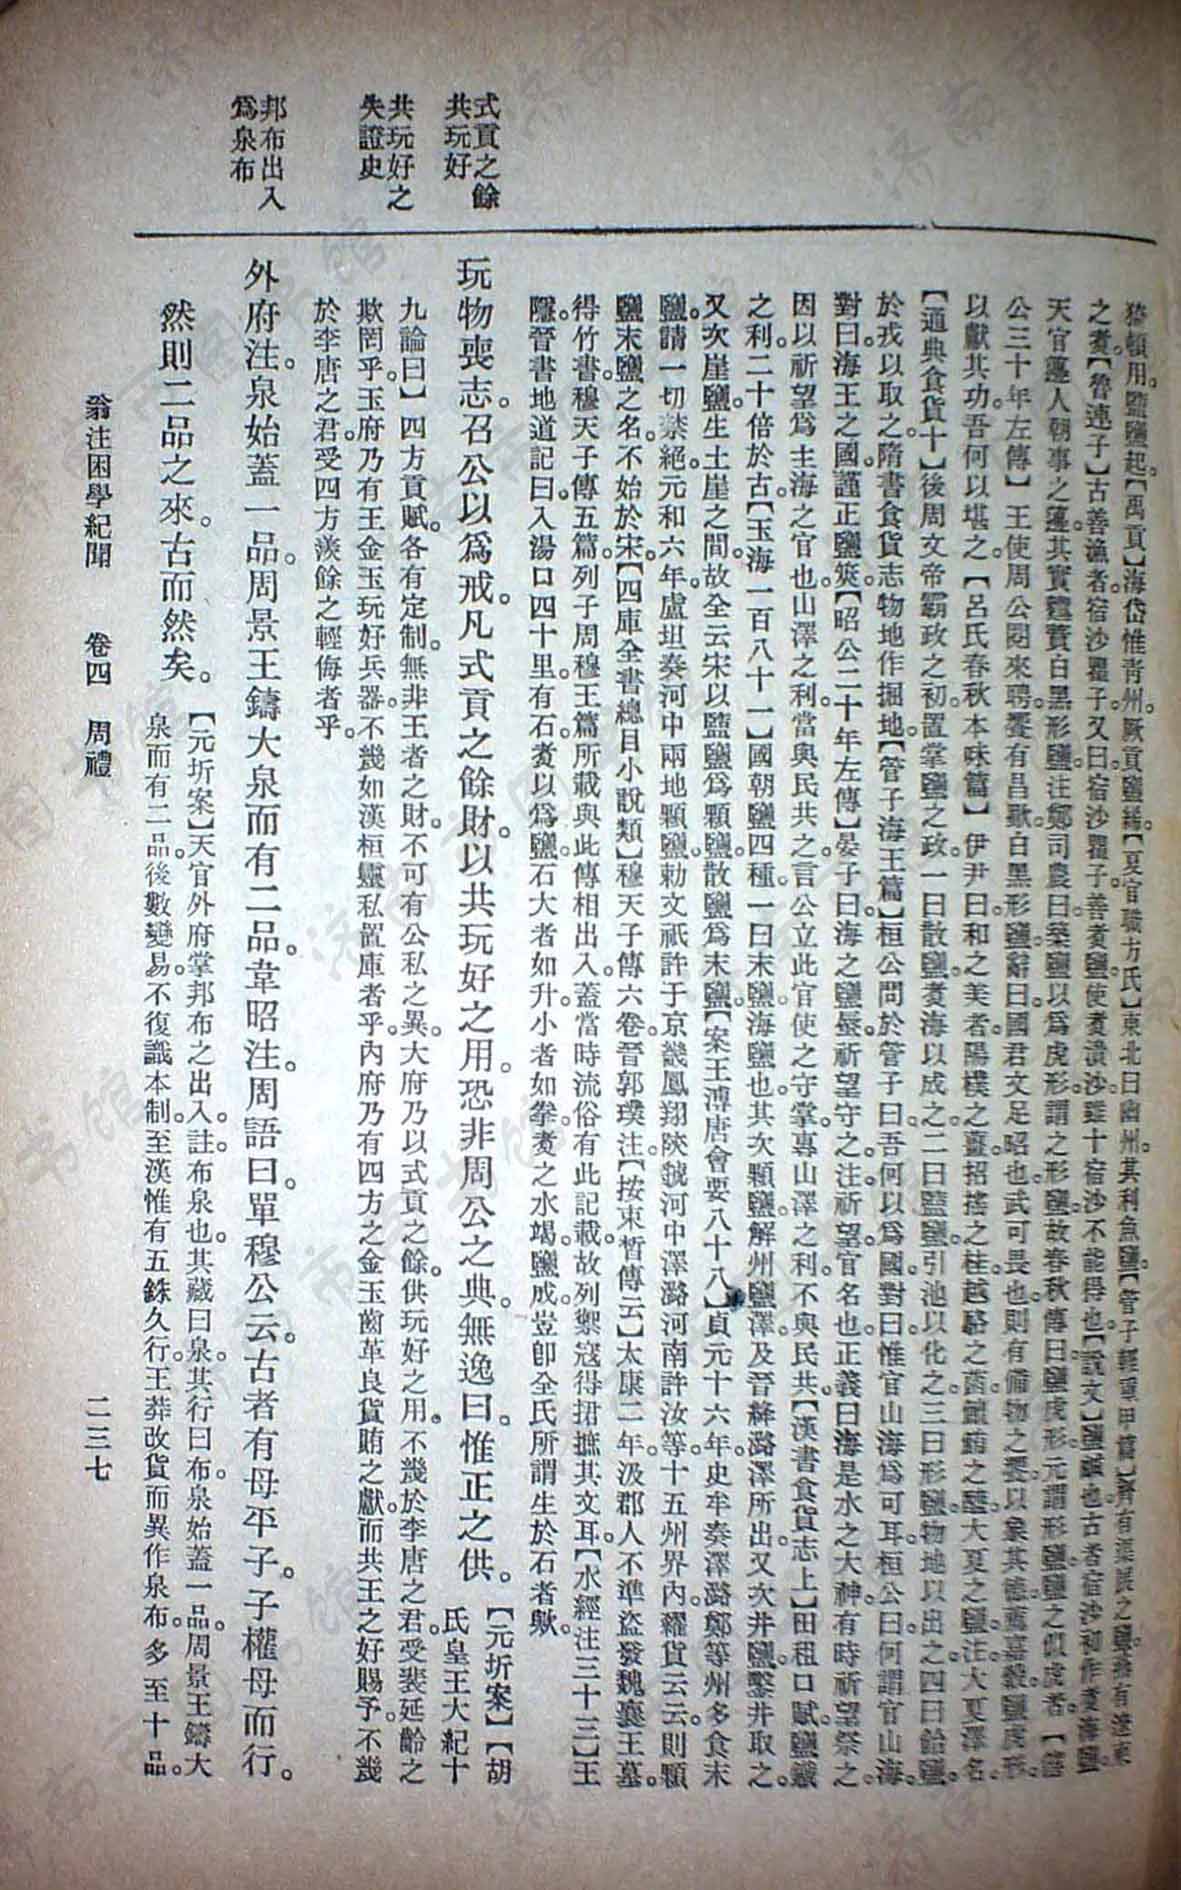 猗頓用鹽鹽起。【禹貢】海岱惟青州。厥貢鹽絺。【夏官職方氏】東北曰幽州。其利魚鹽。【管子輕重甲篇】齊有渠展之鹽。燕有遼東
之煑。【魯連子】古善漁者。宿沙瞿子。又曰。宿沙瞿子善煑鹽。使煑潰沙。雖十宿沙不能得也。【說文】鹽鹹也。古者宿沙初作煑海鹽。
天官籩人。朝事之籩。其實麷蕡白黑形鹽。注。鄭司農曰。築鹽以為虎形。謂之形鹽。故春秋傳曰。鹽虎形。元謂形鹽。鹽之似虎者。【僖
公三十年左傳】王使周公閱來聘。饗有昌歜白黑形鹽。辭曰。國君文足昭也。武可畏也。則有備物之饗。以象其德。薦嘉穀。鹽虎形。
以獻其功。吾何以堪之。【呂氏春秋本味篇】伊尹曰。和之美者。陽樸之薑。招搖之桂。越駱之菌。鱣鮪之醢。大夏之鹽。注。大夏。澤名。
【通典食貨十】後周文帝霸政之初。置掌鹽之政。一曰散鹽。煑海以成之。二曰監鹽。引池以化之。三曰形鹽。物地以出之。四曰飴鹽。
於戎以取之。隋書食貨志物地作掘地。【管子海王篇】桓公問於管子曰。吾何以為國。對曰。惟官山海為可耳。桓公曰。何謂官山海。
對曰。海王之國。謹正鹽筴。【昭公二十年左傳】晏子曰。海之鹽蜃。祈望守之。注。祈望。官名也。正義曰。海是水之大神。有時祈望祭之。
因以祈望為主海之官也。山澤之利。當與民共之。言公立此官。使之守掌。專山澤之利。不與民共。【漢書食貨志上】田租口賦。鹽鐵
之利。二十倍於古。【玉海一百八十一】國朝鹽四種。一曰末鹽。海鹽也。其次顆鹽。解州鹽澤及晉絳潞澤所出。又次井鹽。鑿井取之。
又次崖鹽。生土崖之間。故全云宋以監鹽為顆鹽。散鹽為末鹽。【案王溥唐會要八十八】貞元十六年。史牟奏澤潞鄭等州多食末
鹽。請一切禁絕。元和六年。盧坦奏河中兩地顆鹽。勅文祇許于京畿鳳翔陝虢河中澤潞河南許汝等十五州界內糶貨云云。則顆
鹽末鹽之名。不始於宋。【四庫全書總目小說類】穆天子傳六卷。晉郭璞注。【按束晳傳云】太康二年。汲郡人不準盜發魏襄王墓。
得竹書。穆天子傳五篇。列子周穆王篇所載與此傳相出入。蓋當時流俗有此記載。故列禦寇得捃摭其文耳。【水經注三十三】王
隱晉書地道記曰。入湯口四十里。有石煑以為鹽。石大者如升。小者如拳。煑之水竭鹽成。豈卽全氏所謂生於石者歟。
式貢之餘
共玩好
玩物喪志。召公以為戒。凡式貢之餘財。以共玩好之用。恐非周公之典。無逸曰。惟正之供。【元圻案】【胡
氏皇王大紀十
共玩好之
失證史
九論曰】四方貢賦。各有定制。無非王者之財。不可有公私之異。大府乃以式貢之餘。供玩好之用。不幾於李唐之君。受裴延齡之
欺罔乎。玉府乃有王金玉玩好兵器。不幾如漢桓靈私置庫者乎。內府乃有四方之金玉齒革良貨賄之獻。而共王之好賜予。不幾
於李唐之君。受四方羨餘之輕侮者乎。
邦布出入
為泉布
外府注。泉始蓋一品。周景王鑄大泉而有二品。韋昭注。周語曰。單穆公云。古者有母平子。子權母而行。
然則二品之來。古而然矣。【元圻案】天官外府。掌邦布之出入。註。布泉也。其藏曰泉。其行曰布。泉始蓋一品。周景王鑄大
泉而有二品。後數變易。不復識本制。至漢惟有五銖久行。王莽改貨而異作泉布。多至十品。
翁注困學紀聞 卷四 周禮 二三七